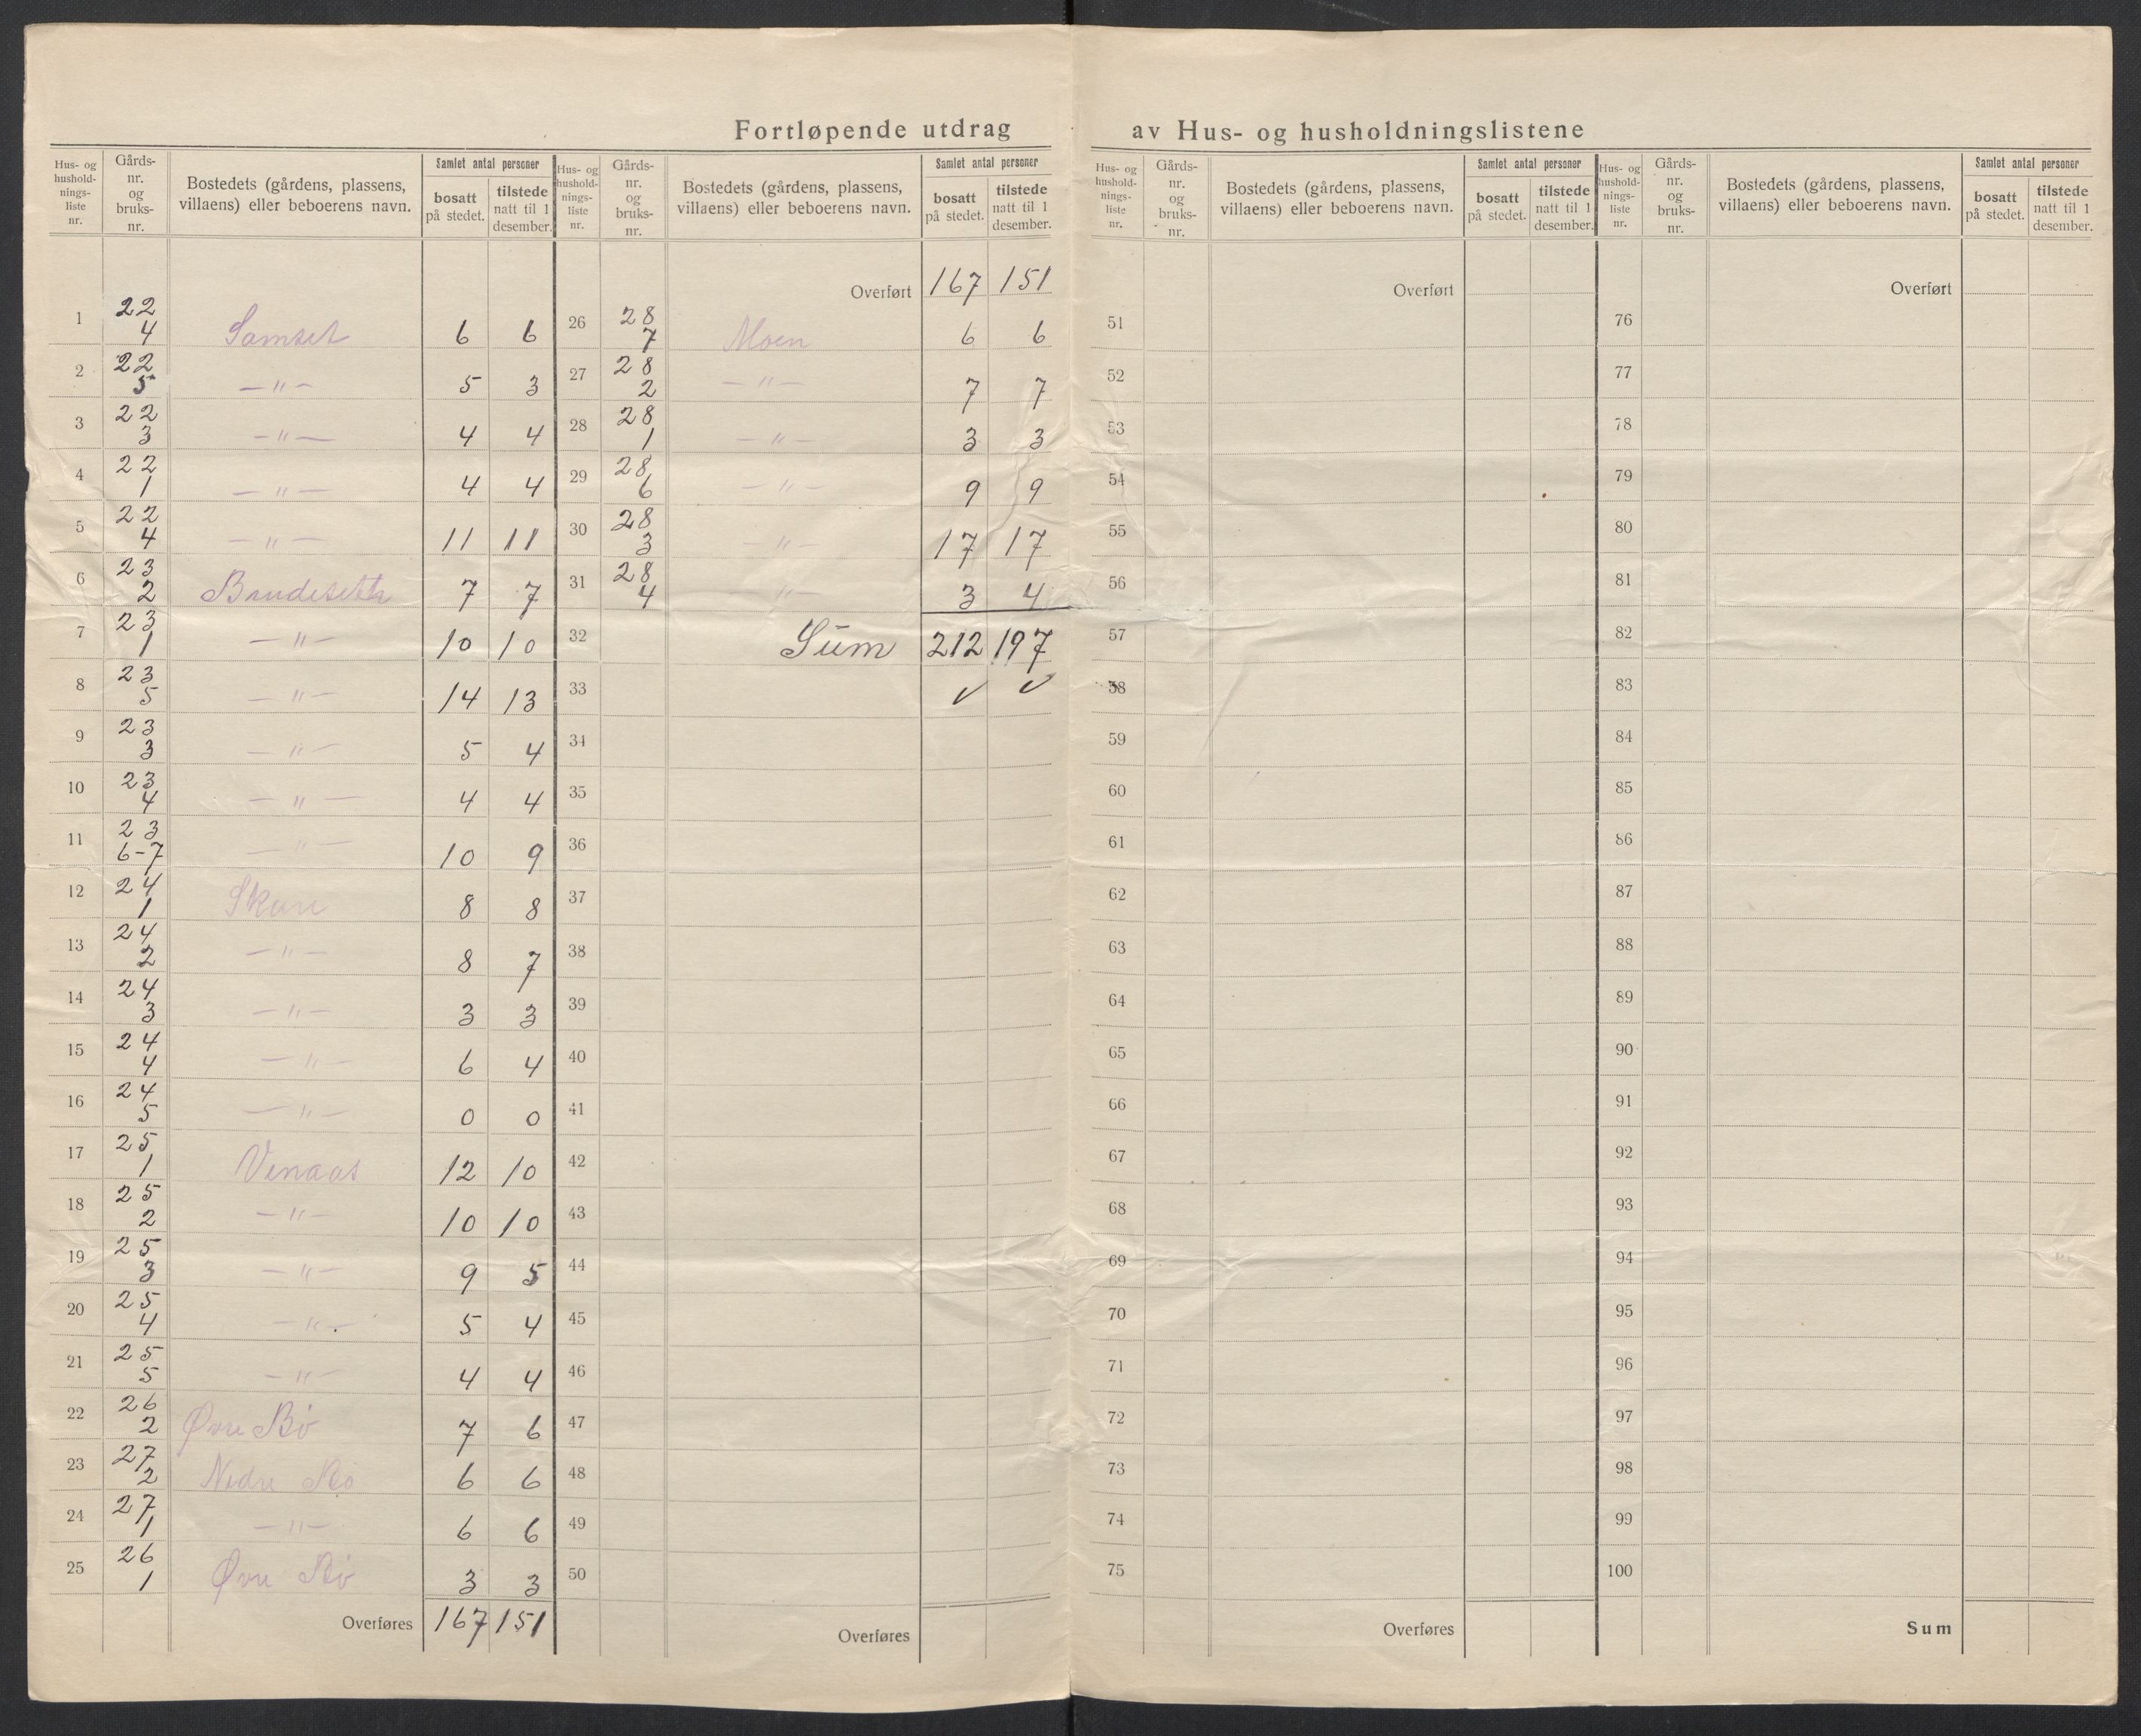 Fortløpende utdrag av Hus- og husholdningslistene
Hus- og hushold- nings- liste nr. | Gårds- nr. og bruks- nr. | Bostedets (gårdens, plassens, villaens) eller beboerens navn. | Samlet antal personer | bosatt på stedet. | tilstede natt til 1 desember.
1 | 22 4 | Samset | 6 | 6
2 | 22 5 | —〃— | 5 | 3
3 | 22 3 | —〃— | 4 | 4
4 | 22 1 | —〃— | 4 | 4
5 | 22 4 | —〃— | 11 | 11
6 | 23 2 | Brudeseth | 7 | 7
7 | 23 1 | —〃— | 10 | 10
8 | 23 5 | —〃— | 14 | 13
9 | 23 3 | —〃— | 5 | 4
10 | 23 4 | —〃— | 4 | 4
11 | 23 6-7 | —〃— | 10 | 9
12 | 24 1 | Skare | 8 | 8
13 | 24 2 | —〃— | 8 | 7
14 | 24 3 | —〃— | 3 | 3
15 | 24 4 | —〃— | 6 | 4
16 | 24 5 | —〃— | 0 | 0
17 | 25 1 | Venaas | 12 | 10
18 | 25 2 | —〃— | 10 | 10
19 | 25 3 | —〃— | 9 | 5
20 | 25 4 | —〃— | 5 | 4
21 | 25 5 | —〃— | 4 | 4
22 | 26 2 | Øvre Bø | 7 | 6
23 | 27 2 | Nedre Bø | 6 | 6
24 | 27 1 | —〃— | 6 | 6
25 | 26 1 | Øvre Bø | 3 | 3
Overføres | 167 | 151
Hus- og hushold- nings- liste nr. | Gårds- nr. og bruks- nr. | Bostedets (gårdens, plassens, villaens) eller beboerens navn. | Samlet antal personer | bosatt på stedet. | tilstede natt til 1 desember.
Overført | 167 | 151
26 | 28 7 | Moen | 6 | 6
27 | 28 2 | —〃— | 7 | 7
28 | 28 1 | —〃— | 3 | 3
29 | 28 6 | —〃— | 9 | 9
30 | 28 3 | —〃— | 17 | 17
31 | 28 4 | —〃— | 3 | 4
32 | Sum | 212 | 197
33 | ✓ | ✓
34
35
36
37
38
39
40
41
42
43
44
45
46
47
48
49
50
Overføres
Hus- og hushold- nings- liste nr. | Gårds- nr. og bruks- nr. | Bostedets (gårdens, plassens, villaens) eller beboerens navn. | Samlet antal personer | bosatt på stedet. | tilstede natt til 1 desember.
Overført
51
52
53
54
55
56
57
58
59
60
61
62
63
64
65
66
67
68
69
70
71
72
73
74
75
Overføres
Hus- og hushold- nings- liste nr. | Gårds- nr. og bruks- nr. | Bostedets (gårdens, plassens, villaens) eller beboerens navn. | Samlet antal personer | bosatt på stedet. | tilstede natt til 1 desember.
Overført
76
77
78
79
80
81
82
83
84
85
86
87
88
89
90
91
92
93
94
95
96
97
98
99
100
Sum